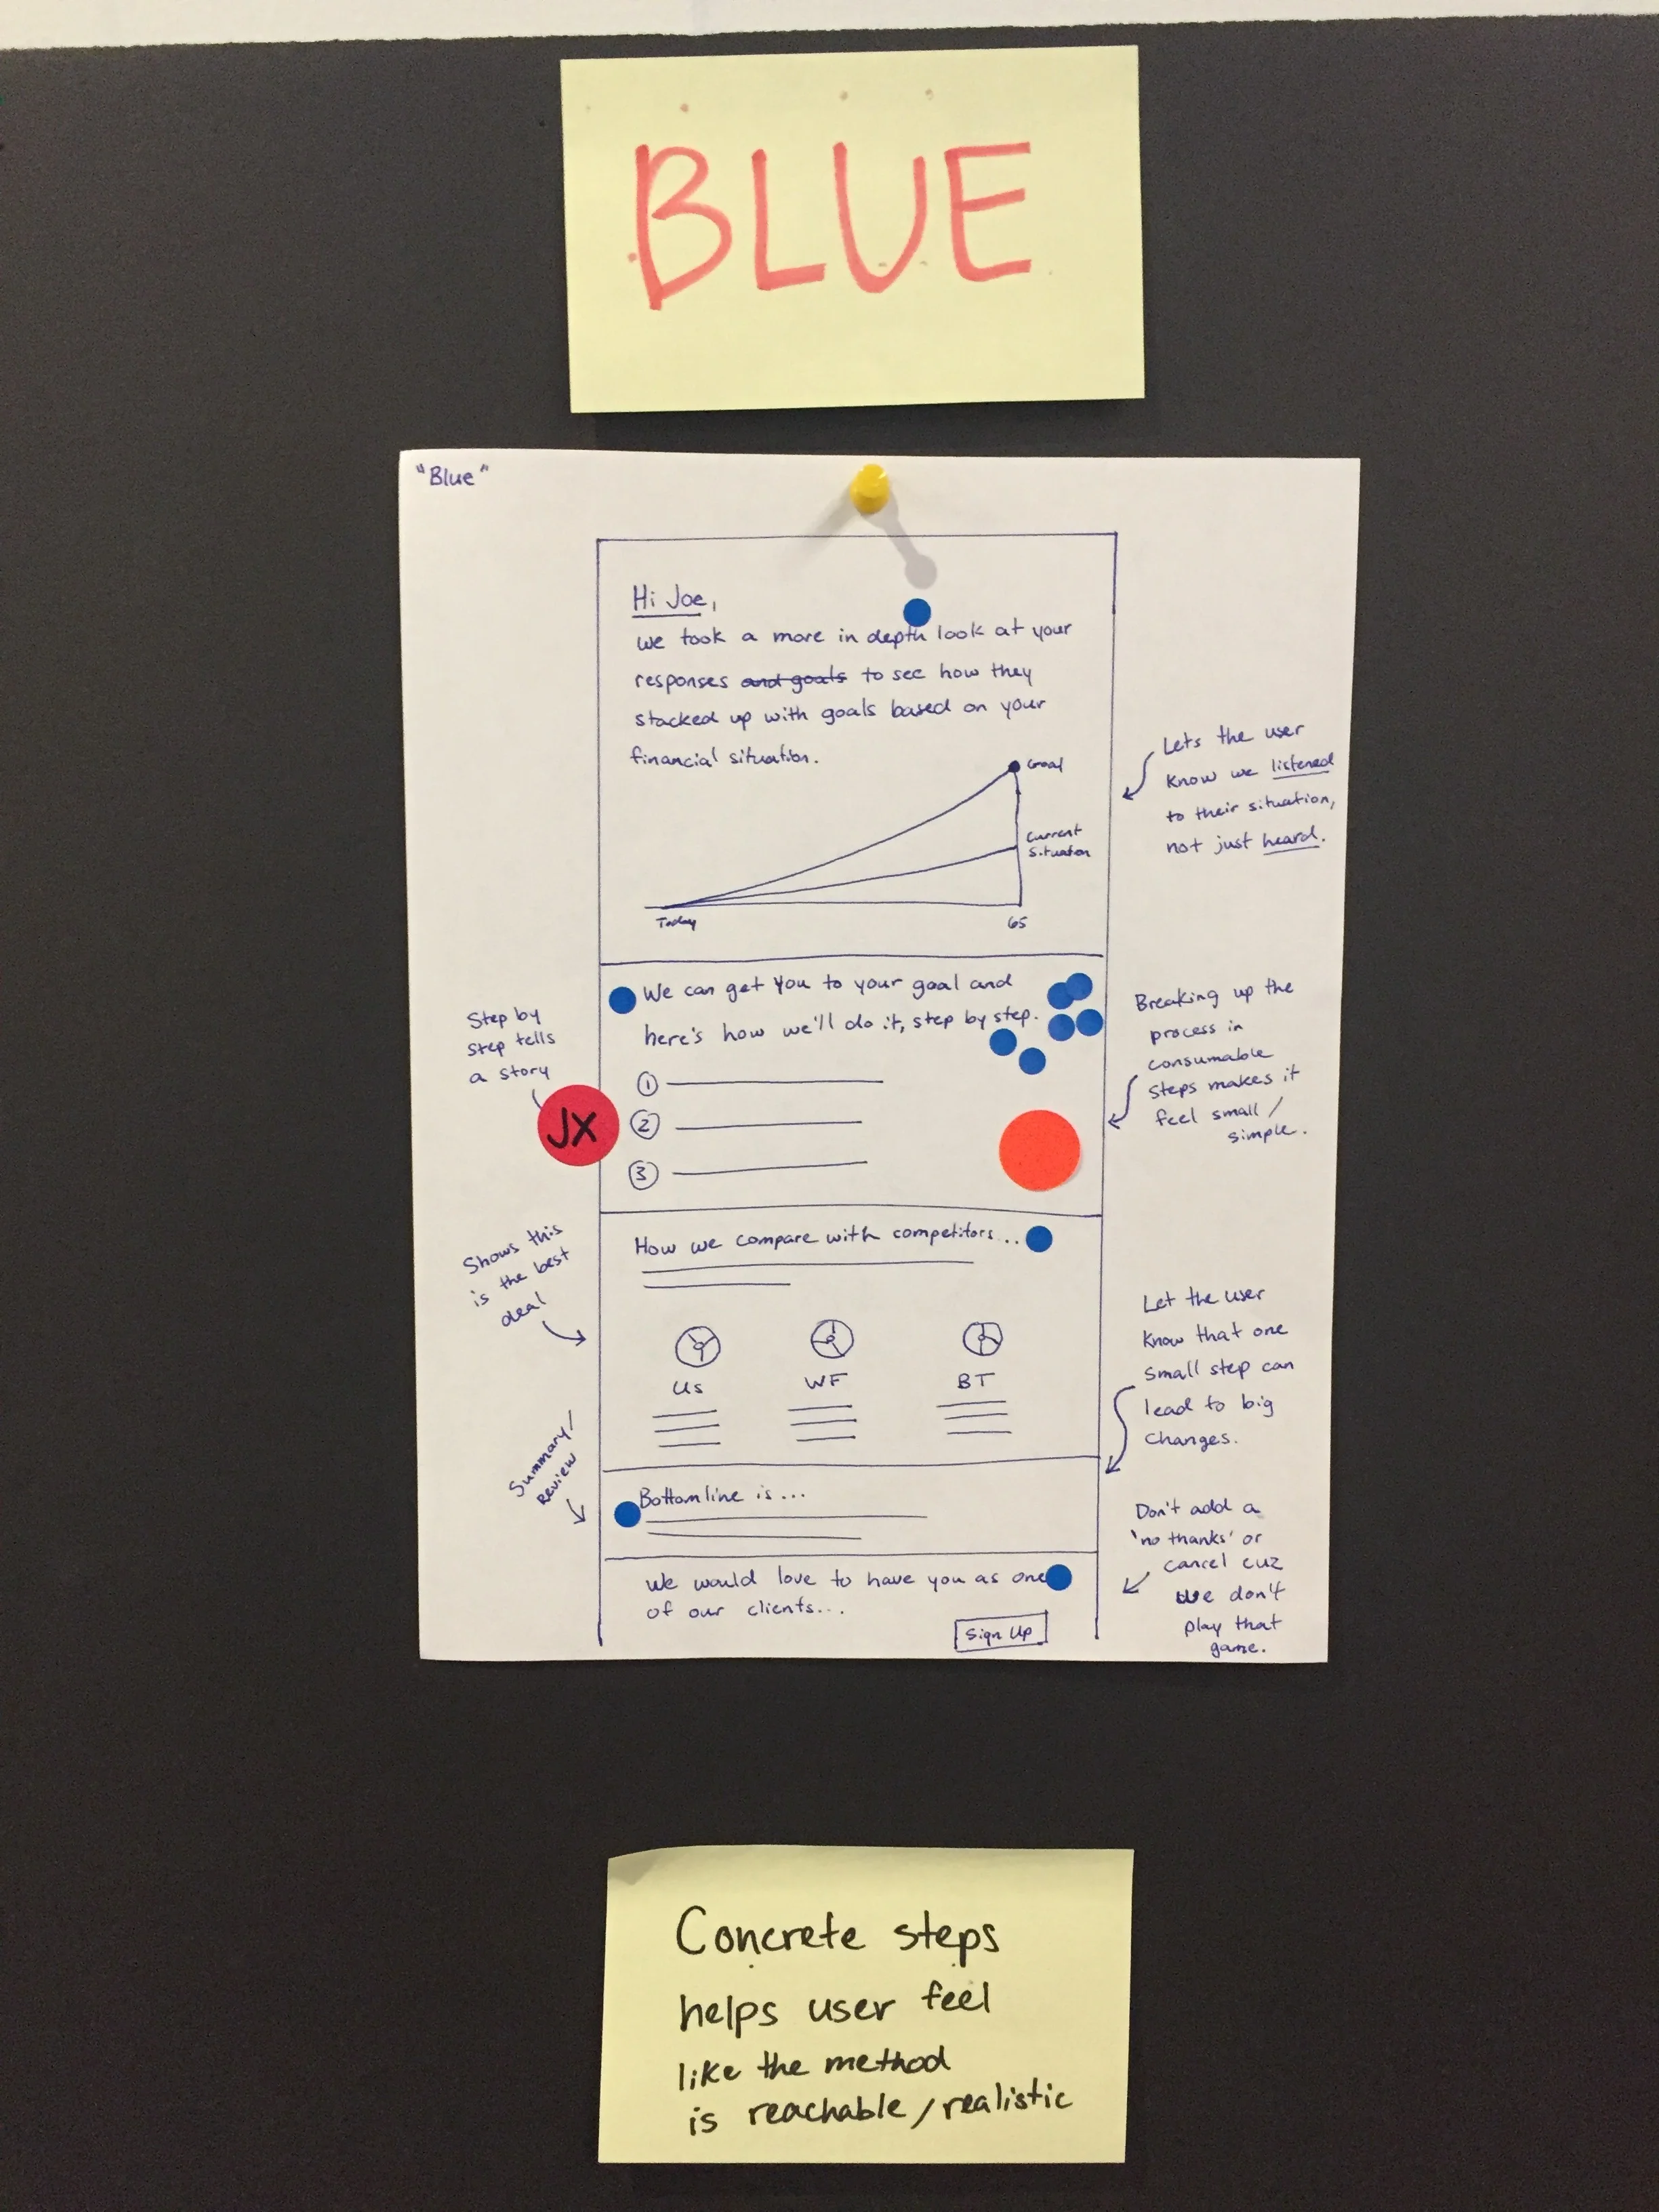 BLUE
"Blue"
Hi Joe,
we took a more in depth look at your
responses and goals to see how they
stacked up with goals based on your
financial situation.
Goal
Current
Situation
Today
65
Lets the user
know we listened
to their situation,
not just heard.
We can get you to your goal and
here's how we'll do it, step by step.
1
2
3
Step by
step tells
a story
JX
Breaking up the
process in
consumable
steps makes it
feel small/
simple.
How we compare with competitors...
Us
WF
BT
Shows this
is the best
deal
Let the user
know that one
small step can
lead to big
changes.
Bottomline is...
Summary/
Review
We would love to have you as one
of our clients...
Sign Up
Don't add a
'no thanks' or
cancel cuz
we don't
play that
game.
Concrete steps
helps user feel
like the method
is reachable/realistic